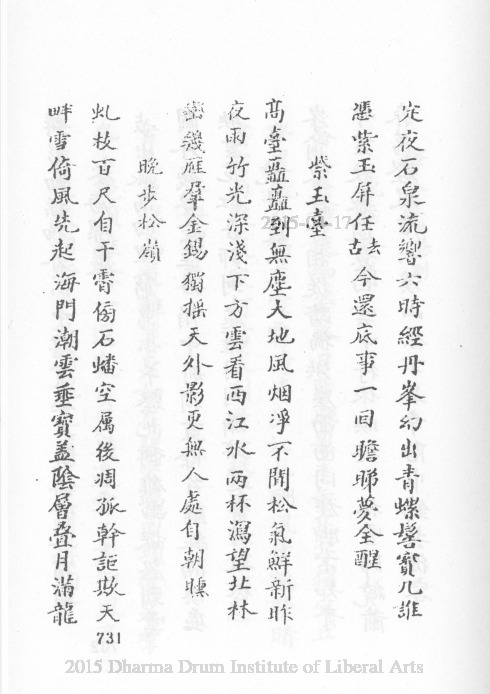 定夜石泉流響六時經丹峯幻出青螺髻寶几誰
憑紫玉屏任去古今還底事一回瞻睇夢全醒
紫玉臺
高臺矗矗到無塵大地風烟淨不聞松氣鮮新昨
夜雨竹光深淺下方雲看西江水兩杯瀉望北林
巒幾雁羣金錫獨搖天外影更無人處自朝曛
晚步松嶺
虬枝百尺自干霄傍石蟠空屬後凋孤幹詎欺天
畔雪倚風先起海門潮雲垂寶蓋陰層疊月滿龍
731
2015-04-17
2015 Dharma Drum Institute of Liberal Arts